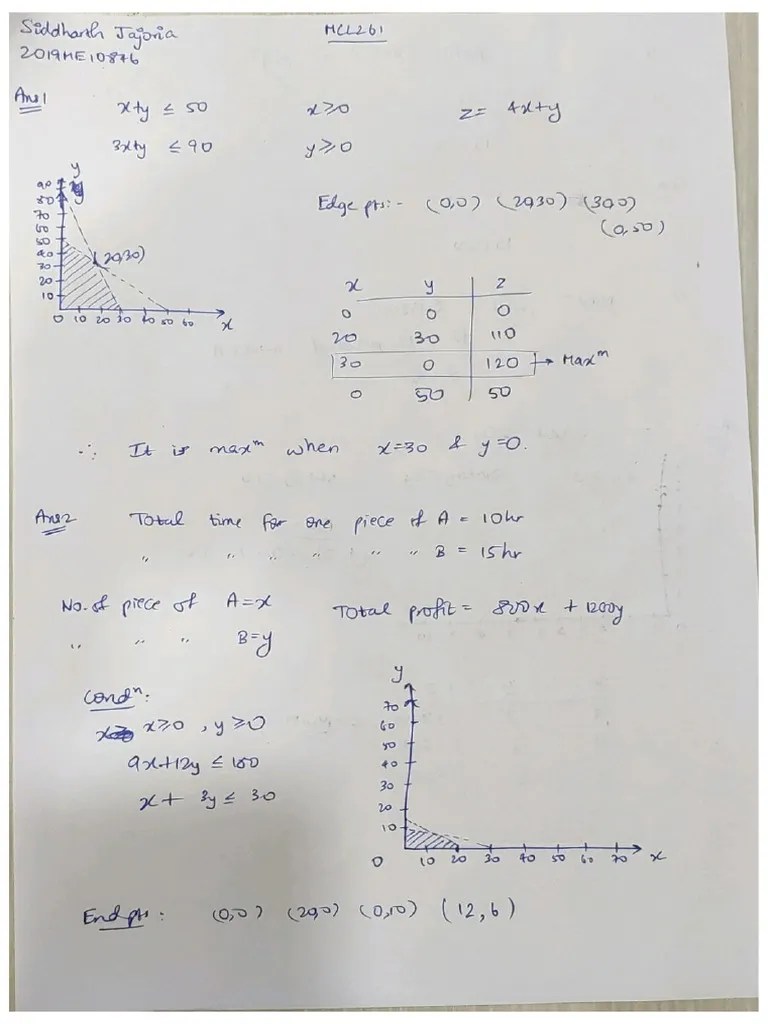 Siddharth Jajoria
MCL261
2019ME10876
Ans1
x+y ≤ 50 x≥0 z= 4x+y
3x+y ≤ 90 y≥0
y
90
80
70
60
50
40
30
20
10
(20,30)
0 10 20 30 40 50 60 x
Edge pts:- (0,0) (20,30) (30,0)
(0,50)
x y z
0 0 0
20 30 110
30 0 120 → Maxᵐ
0 50 50
∴ It is maxᵐ when x=30 & y=0.
Ans2 Total time for one piece of A = 10hr
" " " " " " B = 15hr
No. of piece of A=x Total profit = 800x + 1200y
" " " B=y
Condⁿ:
x≥0 , y≥0
9x+12y ≤ 180
x+ 3y ≤ 30
y
70
60
50
40
30
20
10
0 10 20 30 40 50 60 70 x
End pts: (0,0) (20,0) (0,10) (12,6)